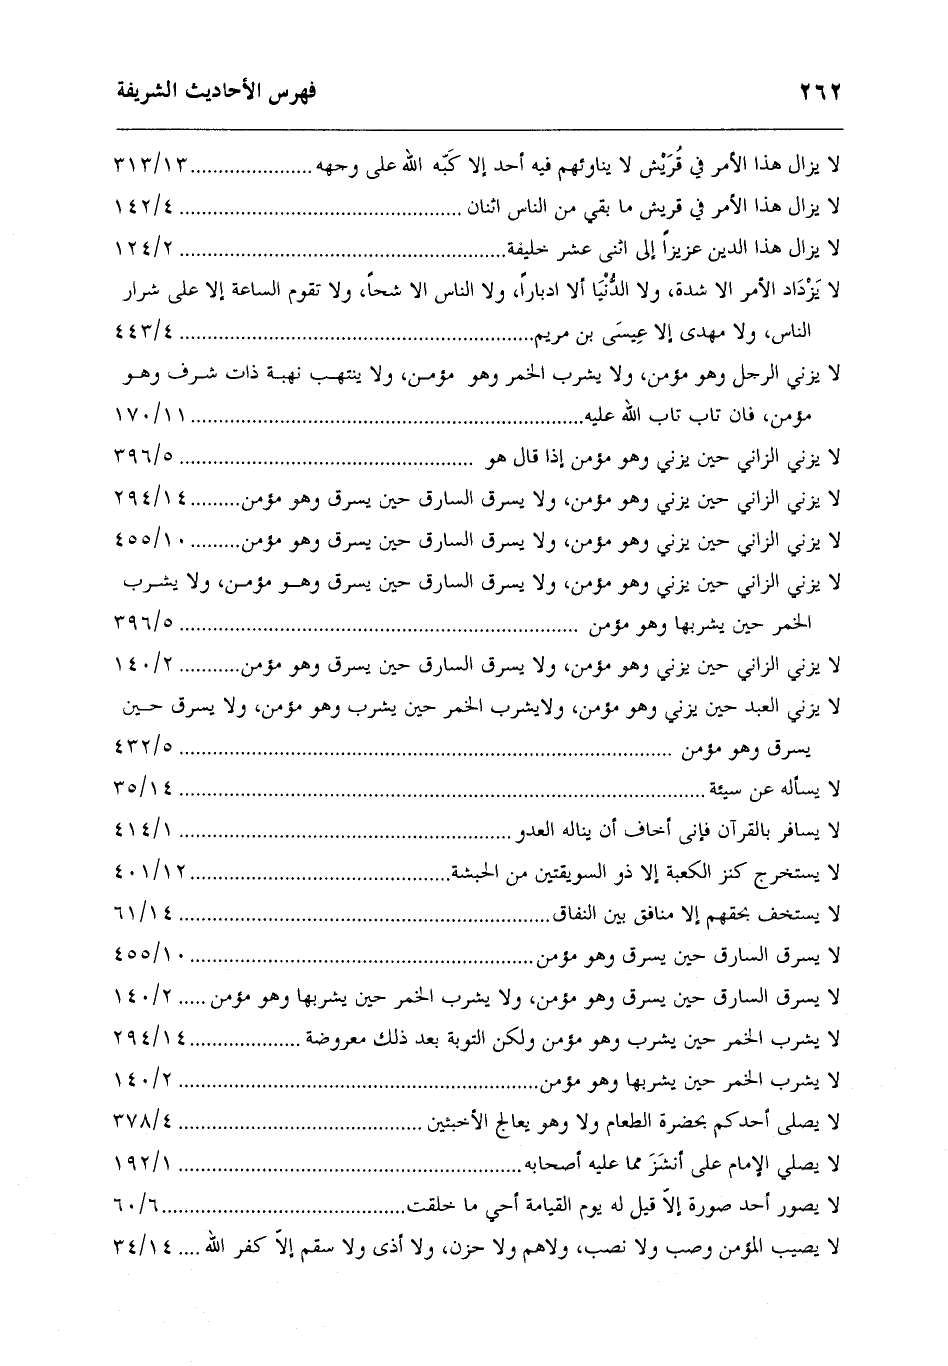 ٢٦٢ فهرس الأحاديث الشريفة
لا يزال هذا الأمر في قُرَيْش لا يناوئهم فيه أحد إلا كَبّه الله على وجهه......................٣١٣/١٣
لا يزال هذا الأمر في قريش ما بقي من الناس اثنان .................................................. ١٤٢/٤
لا يزال هذا الدين عزيزاً إلى اثنى عشر خليفة......................................................... ١٢٤/٢
لا يَزْدَاد الأمر الا شدة، ولا الدُّنْيَا ألا ادباراً، ولا الناس الا شحاً، ولا تقوم الساعة إلا على شرار
الناس، ولا مهدى إلا عِيسَى بن مريم............................................................... ٤٤٣/٤
لا يزني الرجل وهو مؤمن، ولا يشرب الخمر وهو مؤمن، ولا ينتهب نهبة ذات شرف وهو
مؤمن، فان تاب تاب الله عليه.....................................................................١٧٠/١١
لا يزني الزاني حين يزني وهو مؤمن إذا قال هو .................................................... ٣٩٦/٥
لا يزني الزاني حين يزني وهو مؤمن، ولا يسرق السارق حين يسرق وهو مؤمن.........٢٩٤/١٤
لا يزني الزاني حين يزني وهو مؤمن، ولا يسرق السارق حين يسرق وهو مؤمن.........٤٥٥/١٠
لا يزني الزاني حين يزني وهو مؤمن، ولا يسرق السارق حين يسرق وهو مؤمن، ولا يشرب
الخمر حين يشربها وهو مؤمن ...................................................................... ٣٩٦/٥
لا يزني الزاني حين يزني وهو مؤمن، ولا يسرق السارق حين يسرق وهو مؤمن........... ١٤٠/٢
لا يزني العبد حين يزني وهو مؤمن، ولايشرب الخمر حين يشرب وهو مؤمن، ولا يسرق حين
يسرق وهو مؤمن ...................................................................................... ٤٣٢/٥
لا يسأله عن سيئة............................................................................................. ٣٥/١٤
لا يسافر بالقرآن فإنى أخاف أن يناله العدو........................................................... ٤١٤/١
لا يستخرج كنز الكعبة إلا ذو السويقتين من الحبشة..............................................٤٠١/١٢
لا يستخف بحقهم إلا منافق بين النفاق.................................................................. ٦١/١٤
لا يسرق السارق حين يسرق وهو مؤمن............................................................٤٥٥/١٠
لا يسرق السارق حين يسرق وهو مؤمن، ولا يشرب الخمر حين يشربها وهو مؤمن ..... ١٤٠/٢
لا يشرب الخمر حين يشرب وهو مؤمن ولكن التوبة بعد ذلك معروضة ....................٢٩٤/١٤
لا يشرب الخمر حين يشربها وهو مؤمن................................................................ ١٤٠/٢
لا يصلى أحدكم بحضرة الطعام ولا وهو يعالج الأخبثين ........................................... ٣٧٨/٤
لا يصلي الإمام على أنشَزَ مما عليه أصحابه............................................................. ١٩٢/١
لا يصور أحد صورة إلاّ قيل له يوم القيامة أحي ما خلقت...........................................٦٠/٦
لا يصيب المؤمن وصب ولا نصب، ولاهم ولا حزن، ولا أذى ولا سقم إلاّ كفر الله .... ٣٤/١٤